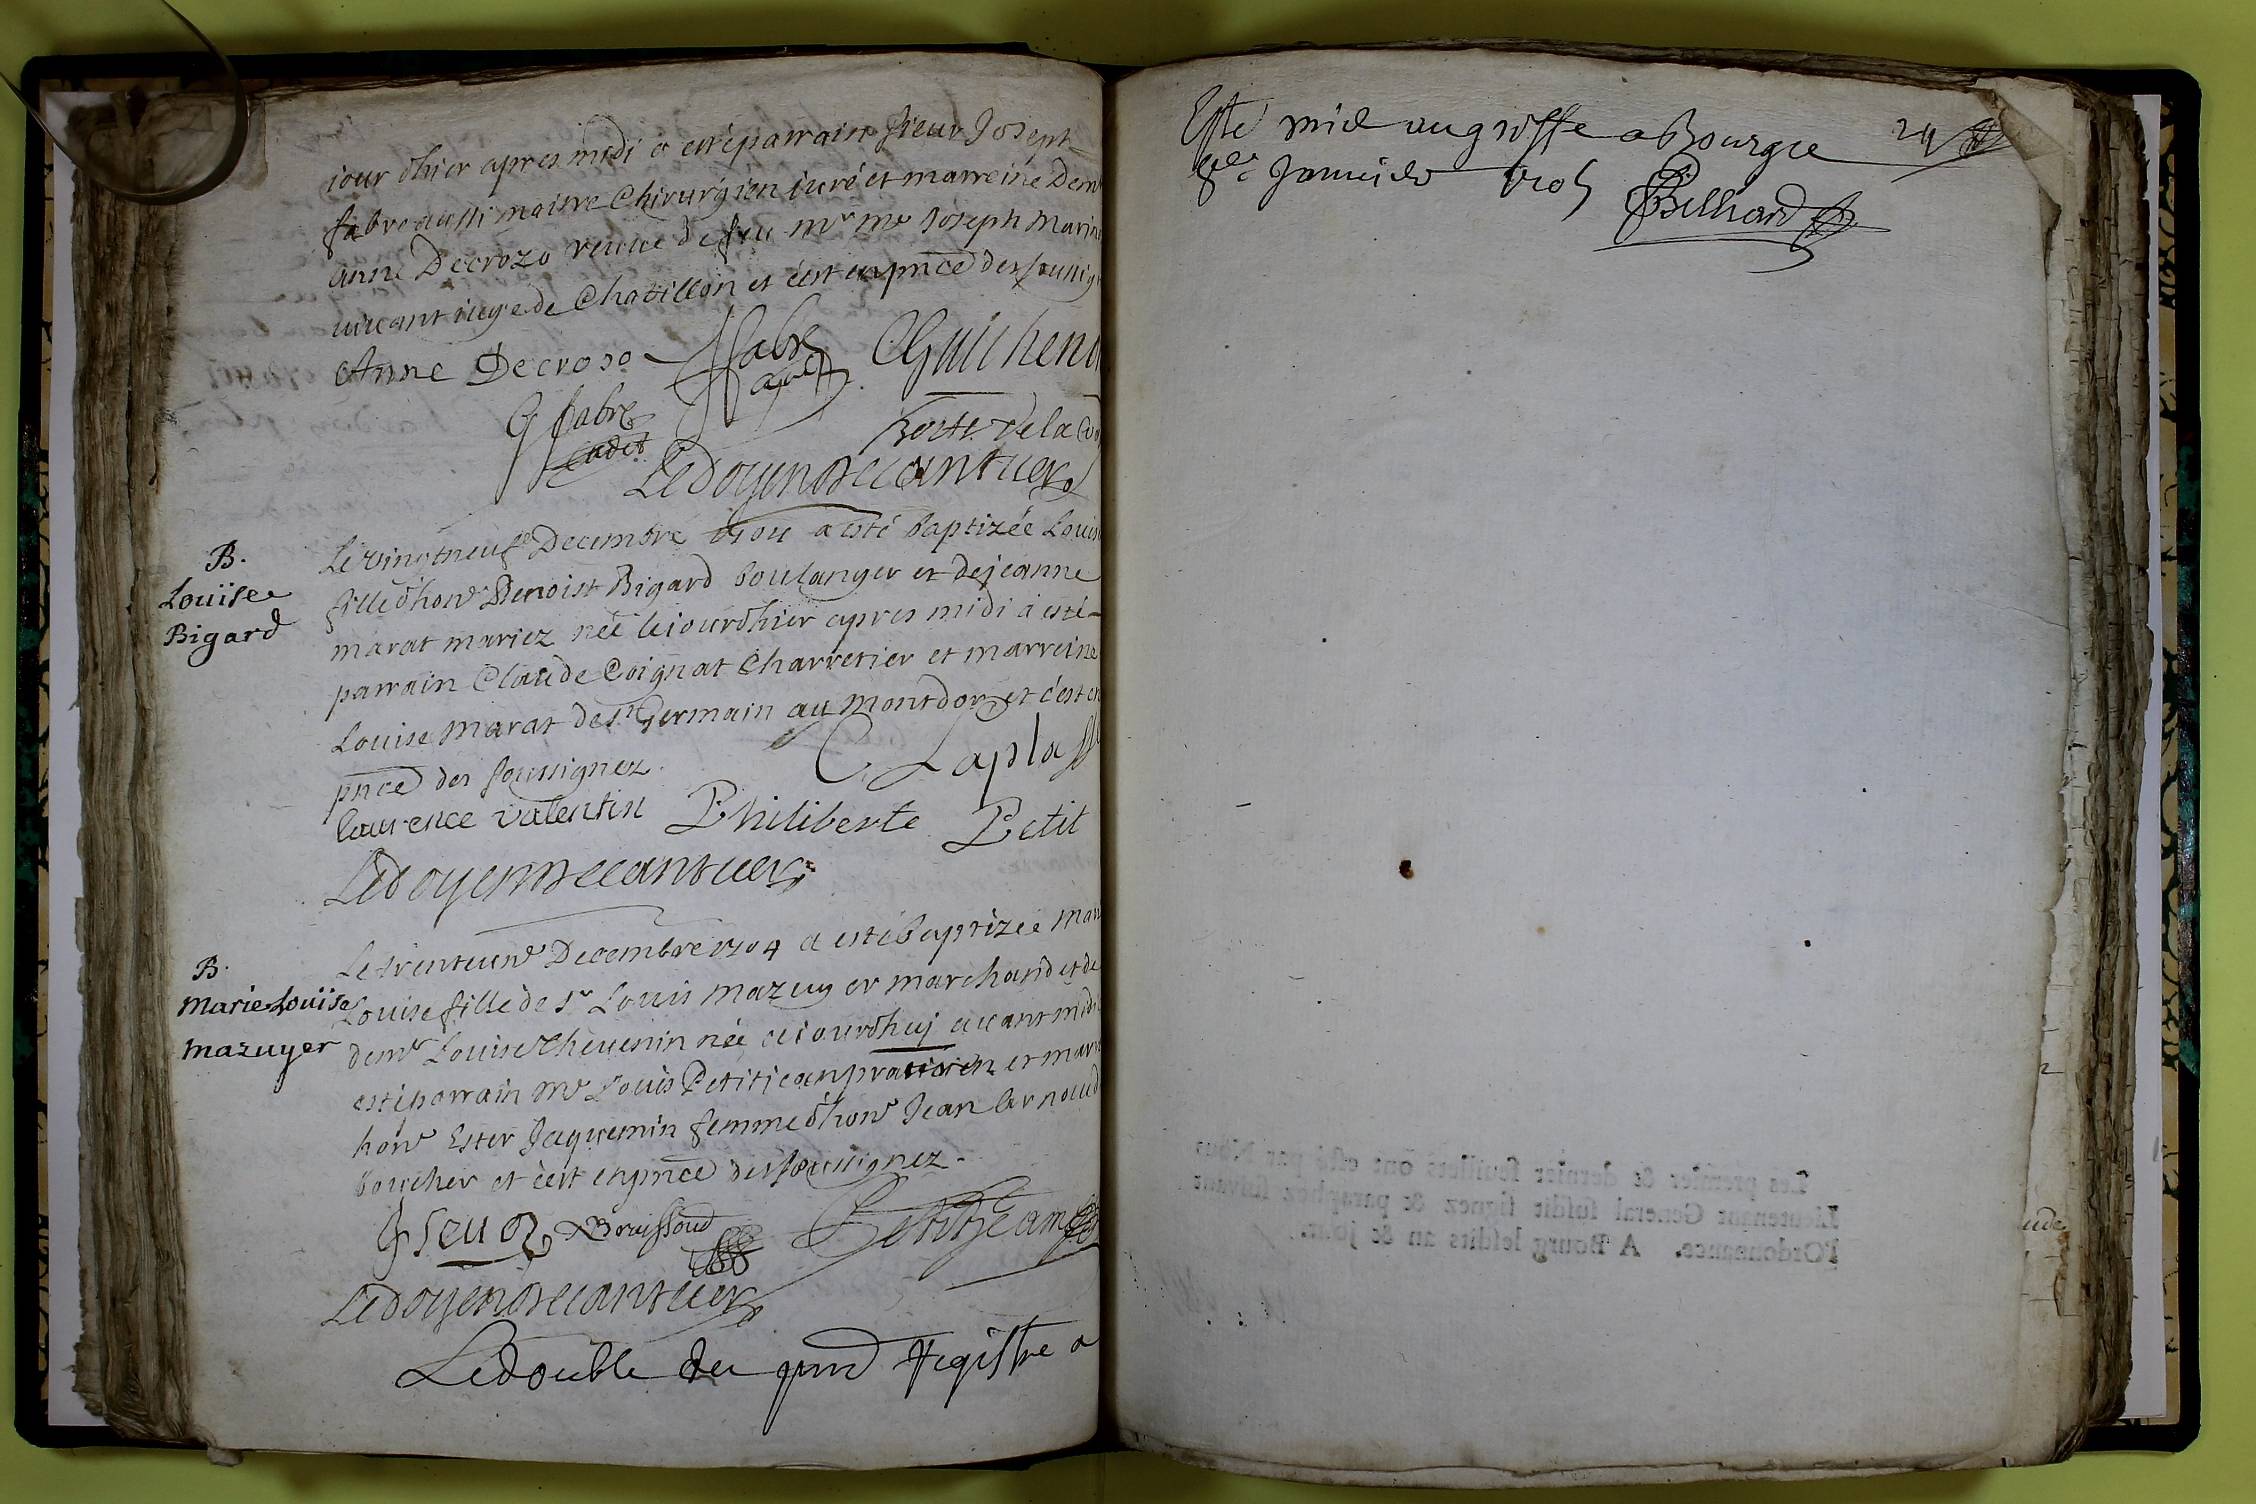 jour d'hier apres midi a esté parrain sieur Joseph
fabre aussi maistre Chirurgien juré et marreine Dem
anne Decrozo veuve de feu mr me Joseph Marin
vivant juge de Chatillon et c'est en pnce des soussig
Anne Decrozo fabre Guichen
fabre cadet
Ledoyen de cantuer
B.
Loüise
Bigard
Le vingtneufe Decembre 1704 a esté baptizée Louis
fille d'hone Benoist Bigard boulanger et de jeanne
marat mariez née le jour d'hier apres midi a esté
parrain Claude Coignat Charretier et marreine
Louise Marat de st Germain au montdor et c'est en
pnce des soussignez.
C Laplasse
laurence valentin Philiberte Petit
Ledoyen de cantuer
B.
Marie Loüise
Mazuyer
Le trenteune Decembre 1704 a esté baptizée Mar
Louise fille de sr Louis Mazuyer marchand et de
demle Louise Thevenin née ce jourd'huj avant midi
esté parrain Me Louis Petitjean praticien et marr
hone Ester Jaquemin femme d'hone Jean Arnoud
boucher et c'est en pnce des soussignez.
Brouissoud Petitjean
Ledoyen de cantuer
Le double du pnt Registre a
Esté mis au greffe a Bourg ce 24
Janvier 1705 Billiard
Les premier & dernier feuillets ont esté par Nous
Lieutenant General susdit signez & paraphez suivant
l'Ordonnance. A Bourg lesdits an & jour.